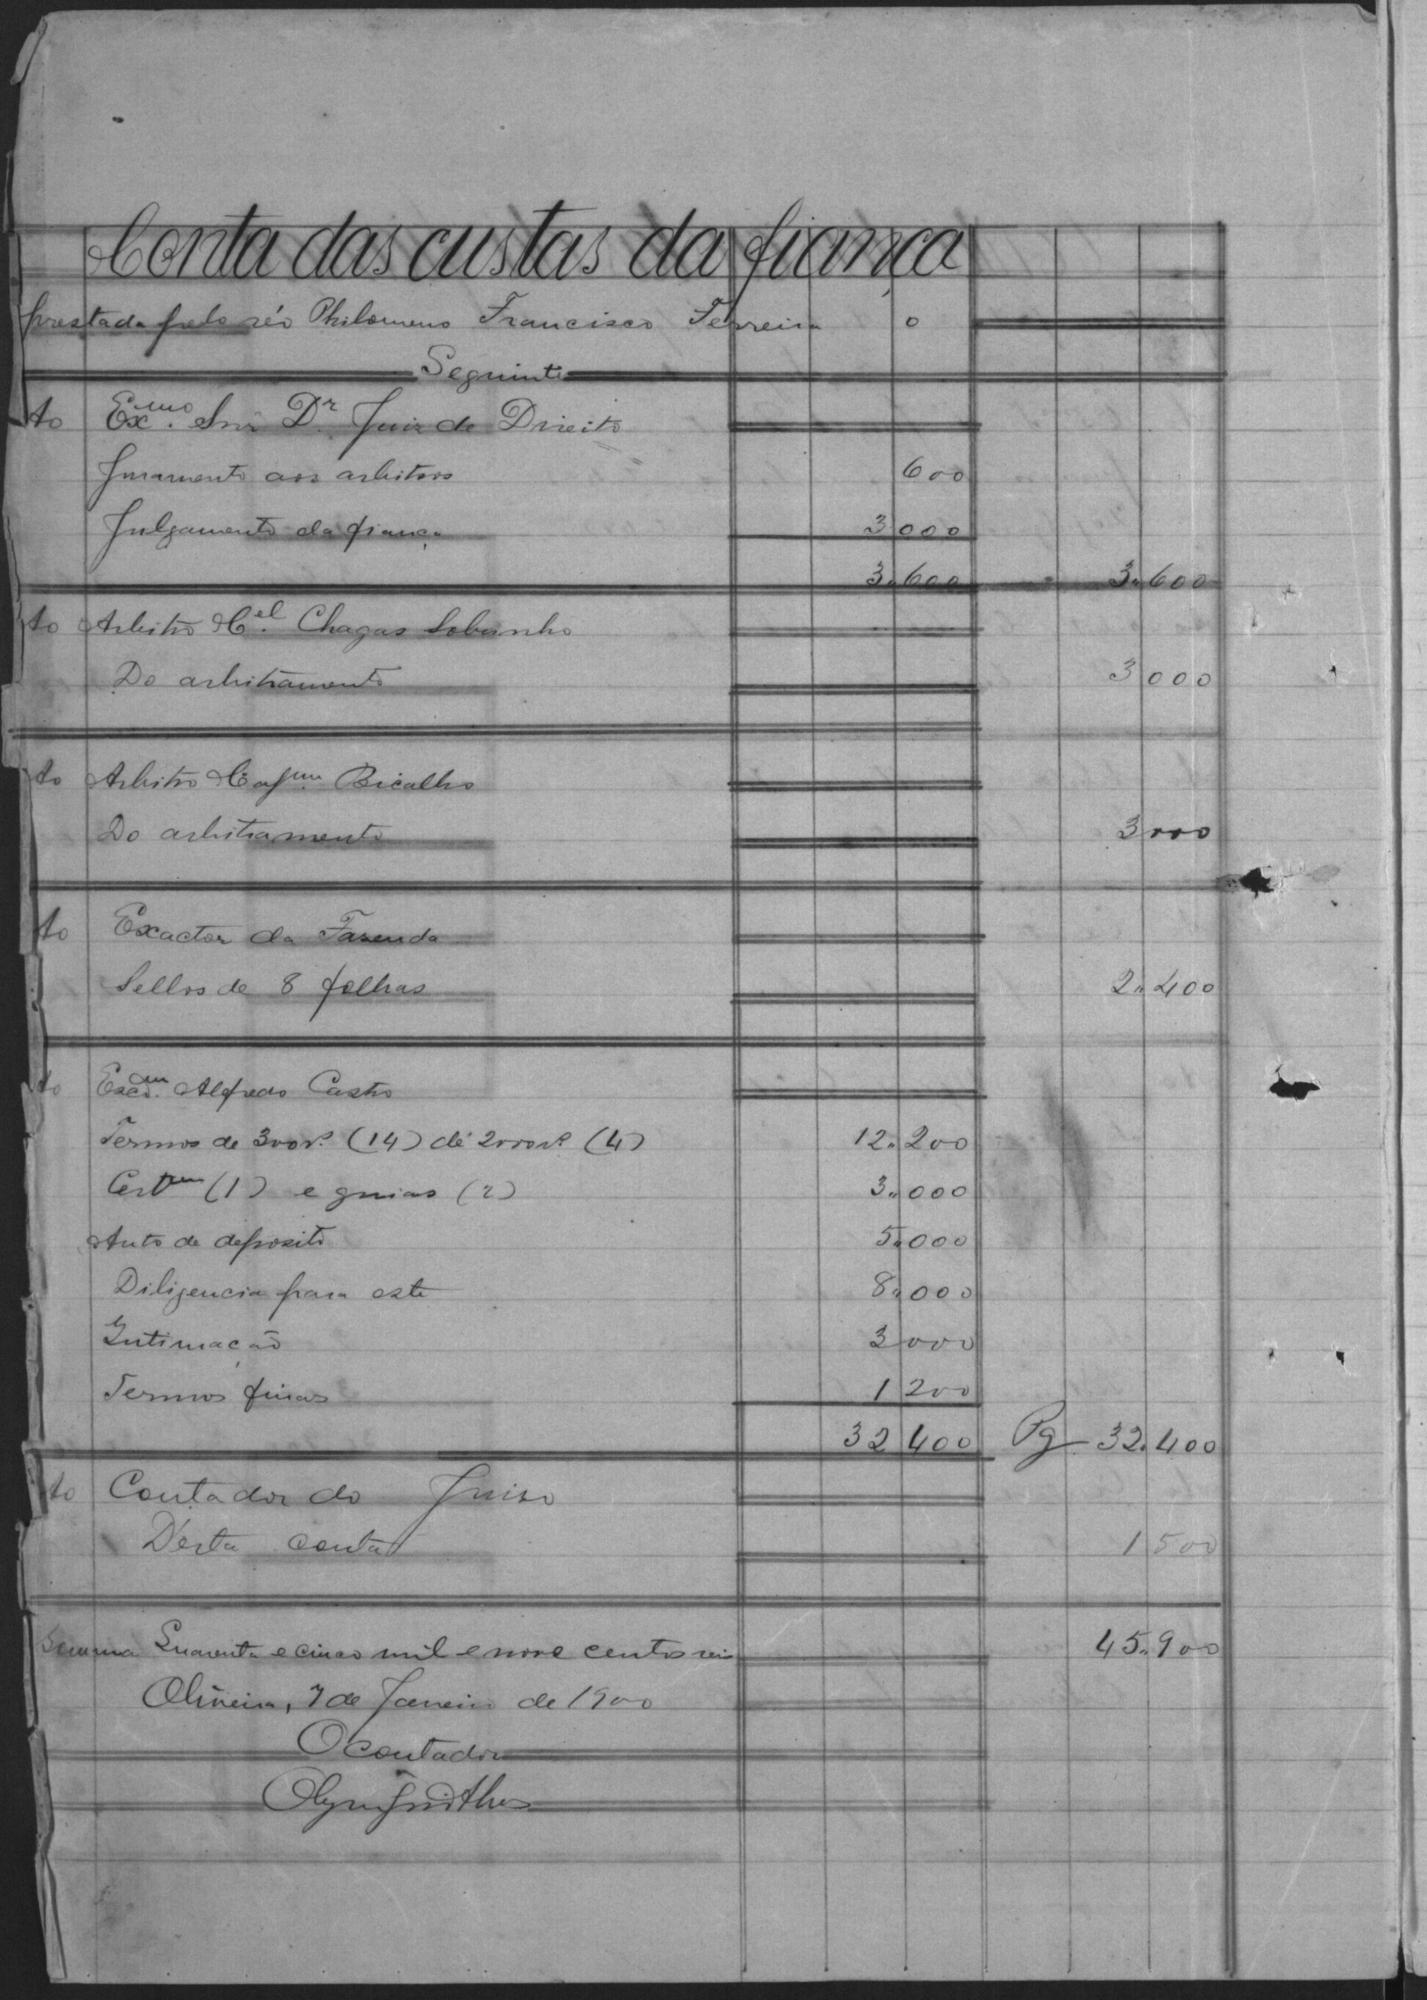 Conta das custas da fiança
prestada pelo réo Philomeno Francisco Ferreira o
Seguinte
Ao Ex.mo Snr Dr Juiz de Direito
Juramento aos arbitros 600
Julgamento da fiança 3000
3"600 3"600
Ao Arbitro Cel. Chagas Sobrinho
Do arbitramento 3000
Ao Arbitro Bicalho
Do arbitramento 3000
Ao Exactor da Fazenda
Sellos de 8 folhas 2"400
Ao Alfredo Castro
Termos de 300 rs. (14) de 2000 rs. (4) 12"200
(1) e guias (2) 3"000
Auto de deposito 5"000
Diligencia para este 8"000
Intimação 3000
Termos finaes 1200
32400 Pg 32"400
Ao Contador do Juiso
D'esta conta 1500
Somma Quarenta e cinco mil e nove centos reis 45"900
Oliveira, 7 de Janeiro de 1900
O contador